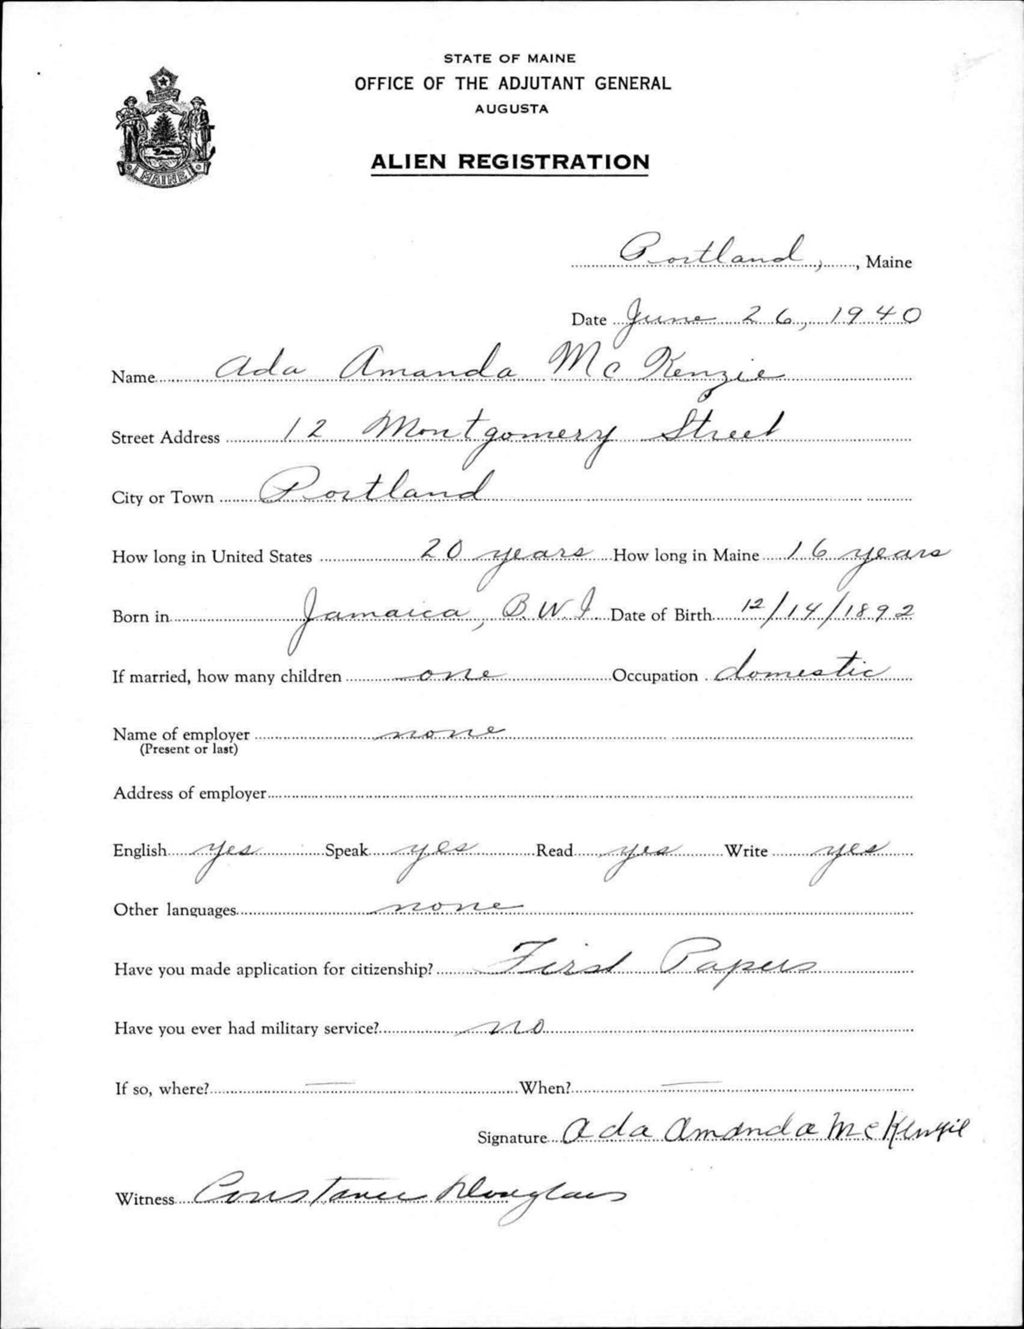 STATE OF MAINE
OFFICE OF THE ADJUTANT GENERAL
AUGUSTA
ALIEN REGISTRATION
MAINE
Portland, , Maine
Date June 26, 1940
Name Ada Amanda McKenzie
Street Address 12 Montgomery Street
City or Town Portland
How long in United States 20 years How long in Maine 16 years
Born in Jamaica, B.W.I. Date of Birth 12/14/1892
If married, how many children one Occupation domestic
Name of employer none
(Present or last)
Address of employer
English yes Speak yes Read yes Write yes
Other languages none
Have you made application for citizenship? First Papers
Have you ever had military service? no
If so, where? — When? —
Signature Ada Amanda McKenzie
Witness Constance Douglass